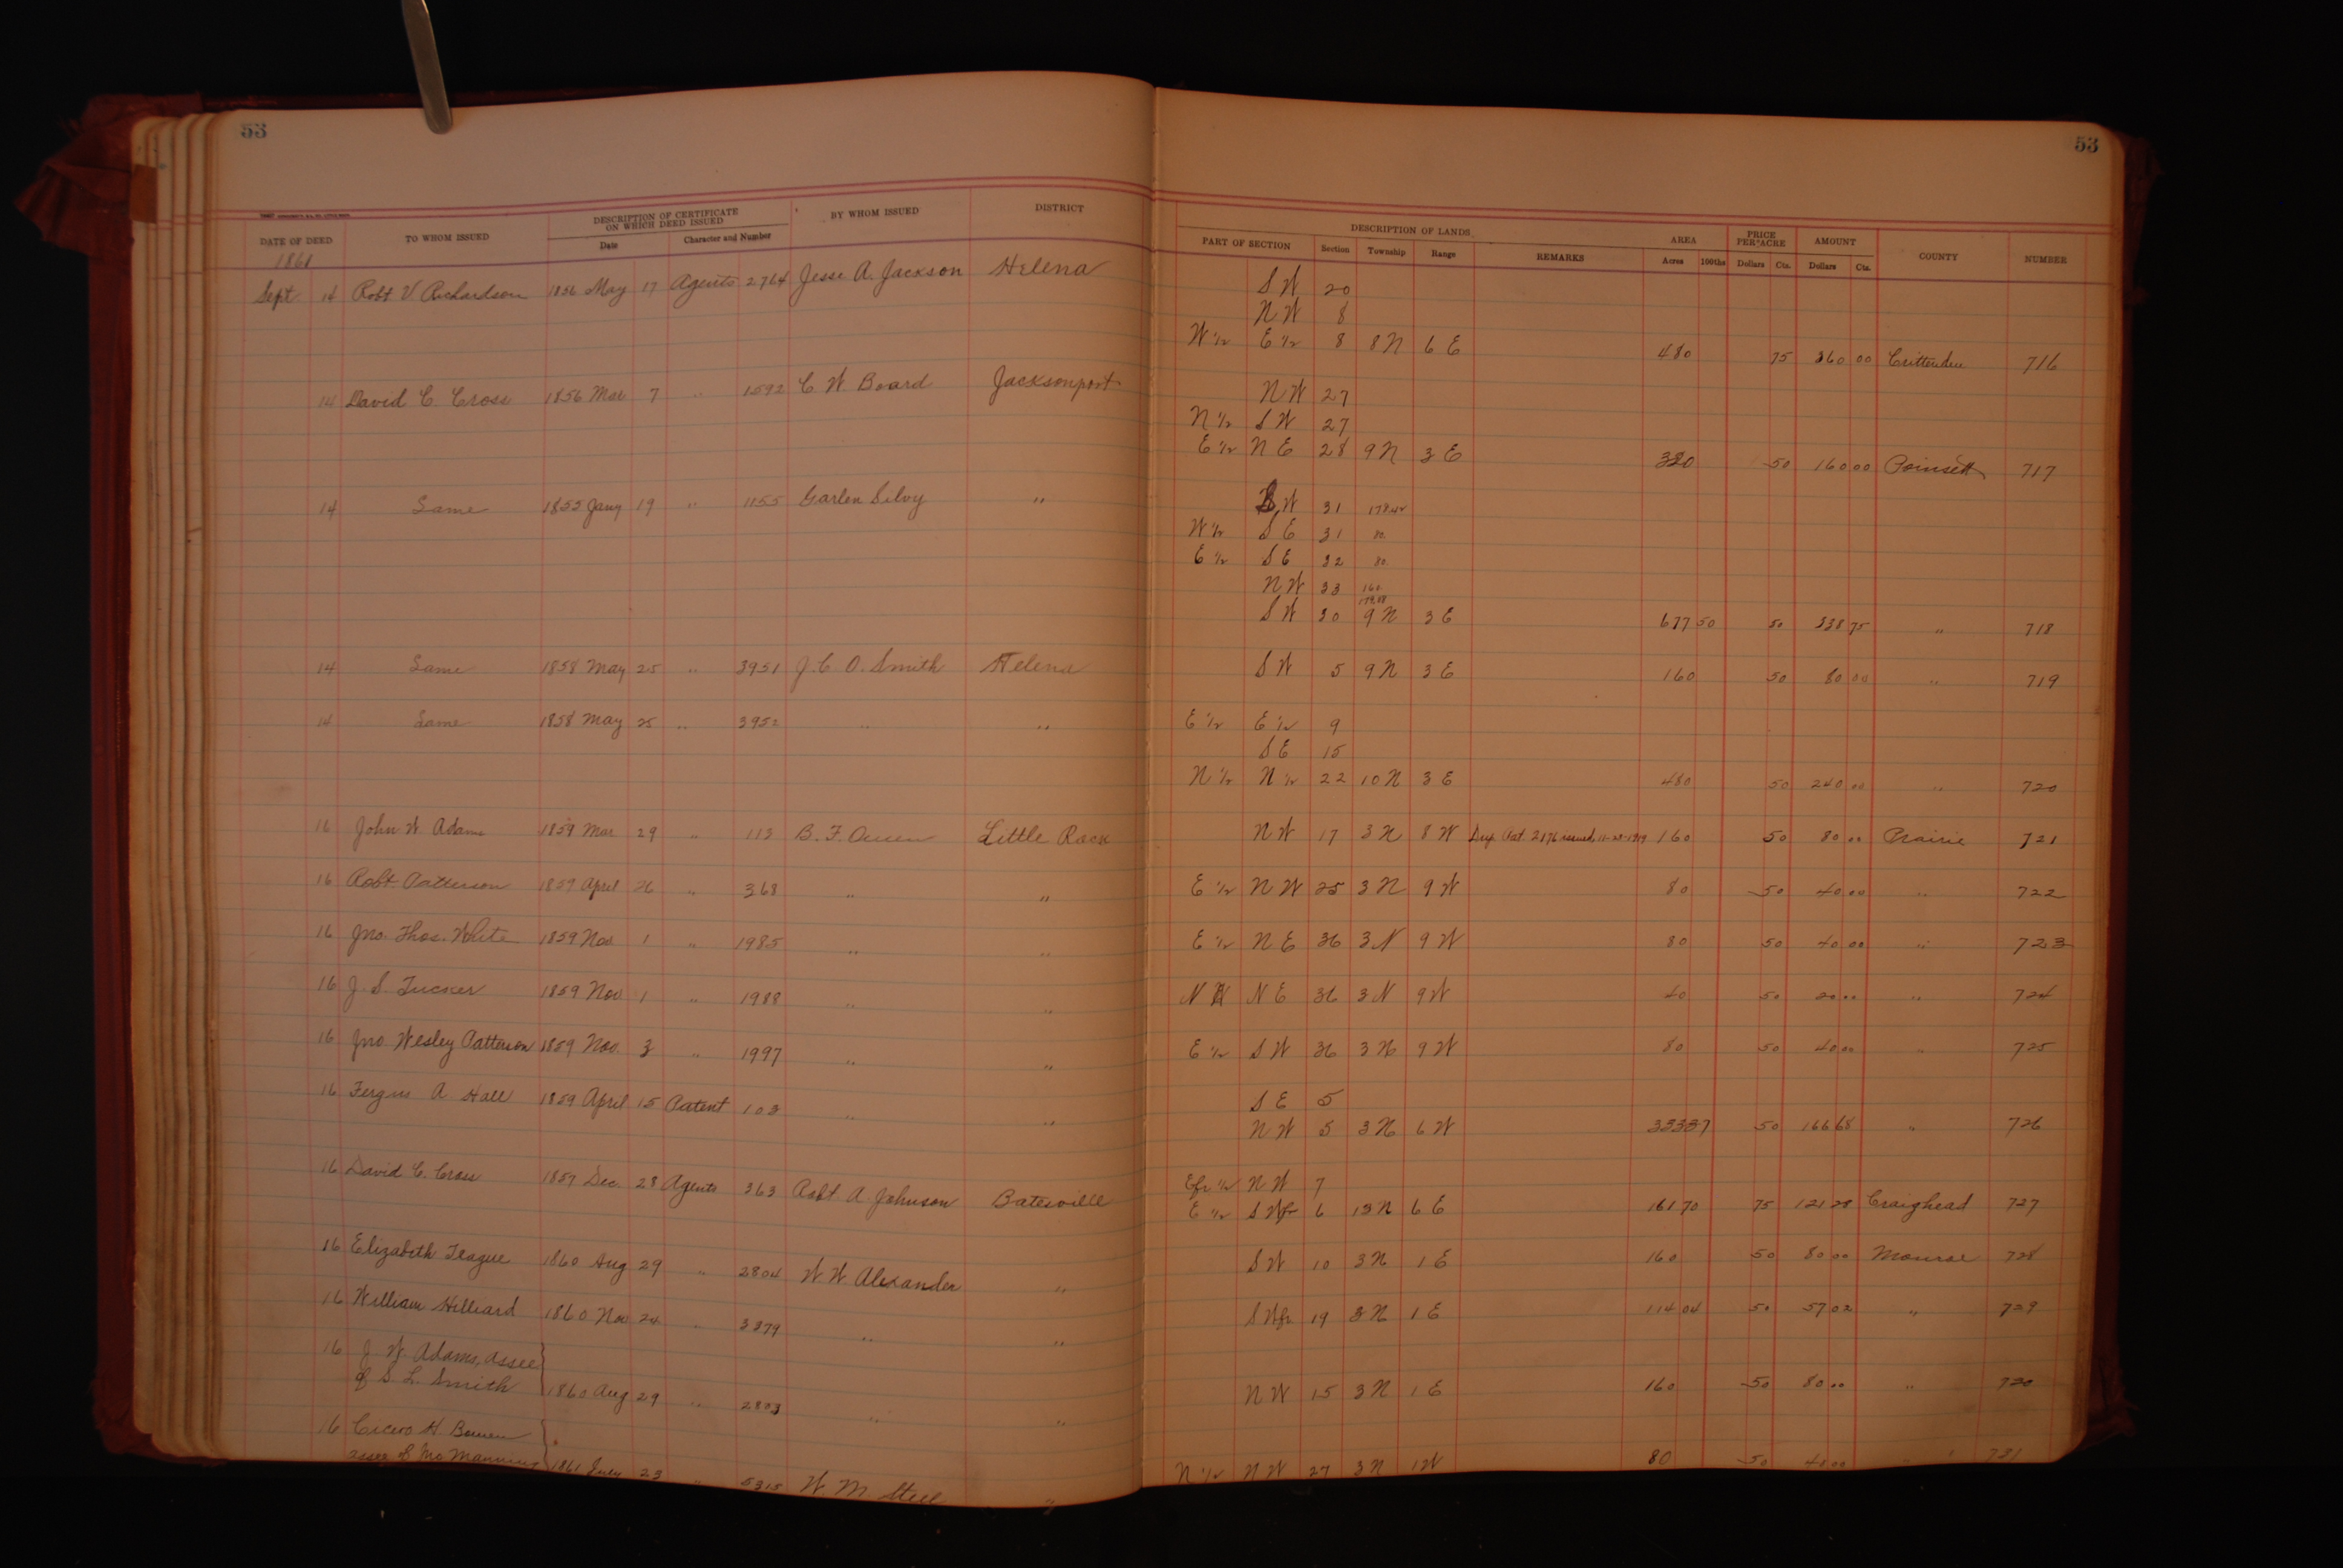 53 53
DATE OF DEED TO WHOM ISSUED DESCRIPTION OF CERTIFICATE ON WHICH DEED ISSUED Date Character and Number BY WHOM ISSUED DISTRICT DESCRIPTION OF LANDS PART OF SECTION Section Township Range REMARKS AREA Acres 100ths PRICE PER ACRE Dollars Cts. AMOUNT Dollars Cts. COUNTY NUMBER
1861
Sept 14 Robt V Richardson 1856 May 17 Agents 2764 Jesse A. Jackson Helena S W 20
N W 8
W 1/2 E 1/2 8 8 N 6 E 480 75 360 00 Crittenden 716
14 David C. Cross 1856 Mar 7 " 1592 C W Board Jacksonport N W 27
N 1/2 S W 27
E 1/2 N E 28 9 N 3 E 320 50 160 00 Poinsett 717
14 Same 1855 Jany 19 " 1155 Garlen Silvy " S W 31 178.42
W 1/2 S E 31 80
E 1/2 S E 32 80
N W 33 160
S W 30 9 N 3 E 677 50 50 338 75 " 718
14 Same 1858 May 25 " 3951 J. C. O. Smith Helena S W 5 9 N 3 E 160 50 80 00 " 719
14 Same 1858 May 25 " 3952 " " E 1/2 E 1/2 9
S E 15
N 1/2 N 1/2 22 10 N 3 E 480 50 240 00 " 720
16 John W Adams 1859 Mar 29 " 113 B. F. Owen Little Rock N W 17 3 N 8 W Dup. Pat. 2176 issued, 11-28-1919 160 50 80 00 Prairie 721
16 Robt. Patterson 1859 April 26 " 368 " " E 1/2 N W 25 3 N 9 W 80 50 40 00 " 722
16 Jno. Thos. White 1859 Nov 1 " 1985 " " E 1/2 N E 36 3 N 9 W 80 50 40 00 " 723
16 J. S. Tucker 1859 Nov 1 " 1988 " " N W N E 36 3 N 9 W 40 50 20 00 " 724
16 Jno Wesley Patterson 1859 Nov. 3 " 1997 " " E 1/2 S W 36 3 N 9 W 80 50 40 00 " 725
16 Fergus A Hall 1859 April 15 Patent 103 " " S E 5
N W 5 3 N 6 W 333 37 50 166 68 " 726
16 David C. Cross 1857 Dec. 28 Agents 363 Robt A. Johnson Batesville E fr 1/2 N W 7
E 1/2 S W fr 6 13 N 6 E 161 70 75 121 28 Craighead 727
16 Elizabeth Teague 1860 Aug 29 " 2804 W W. Alexander " S W 10 3 N 1 E 160 50 80 00 Monroe 728
16 William Hilliard 1860 Nov 24 " 3379 " " S W fr 19 3 N 1 E 114 04 50 57 02 " 729
16 J. W. Adams, assee
of S. L. Smith 1860 Aug 29 " 2803 " " N W 15 3 N 1 E 160 50 80 00 " 730
16 Cicero H Bowen
assee of Jno Manning 1861 July 23 " 5315 W. M. Steel " N 1/2 N W 27 3 N 1 W 80 50 40 00 " 731